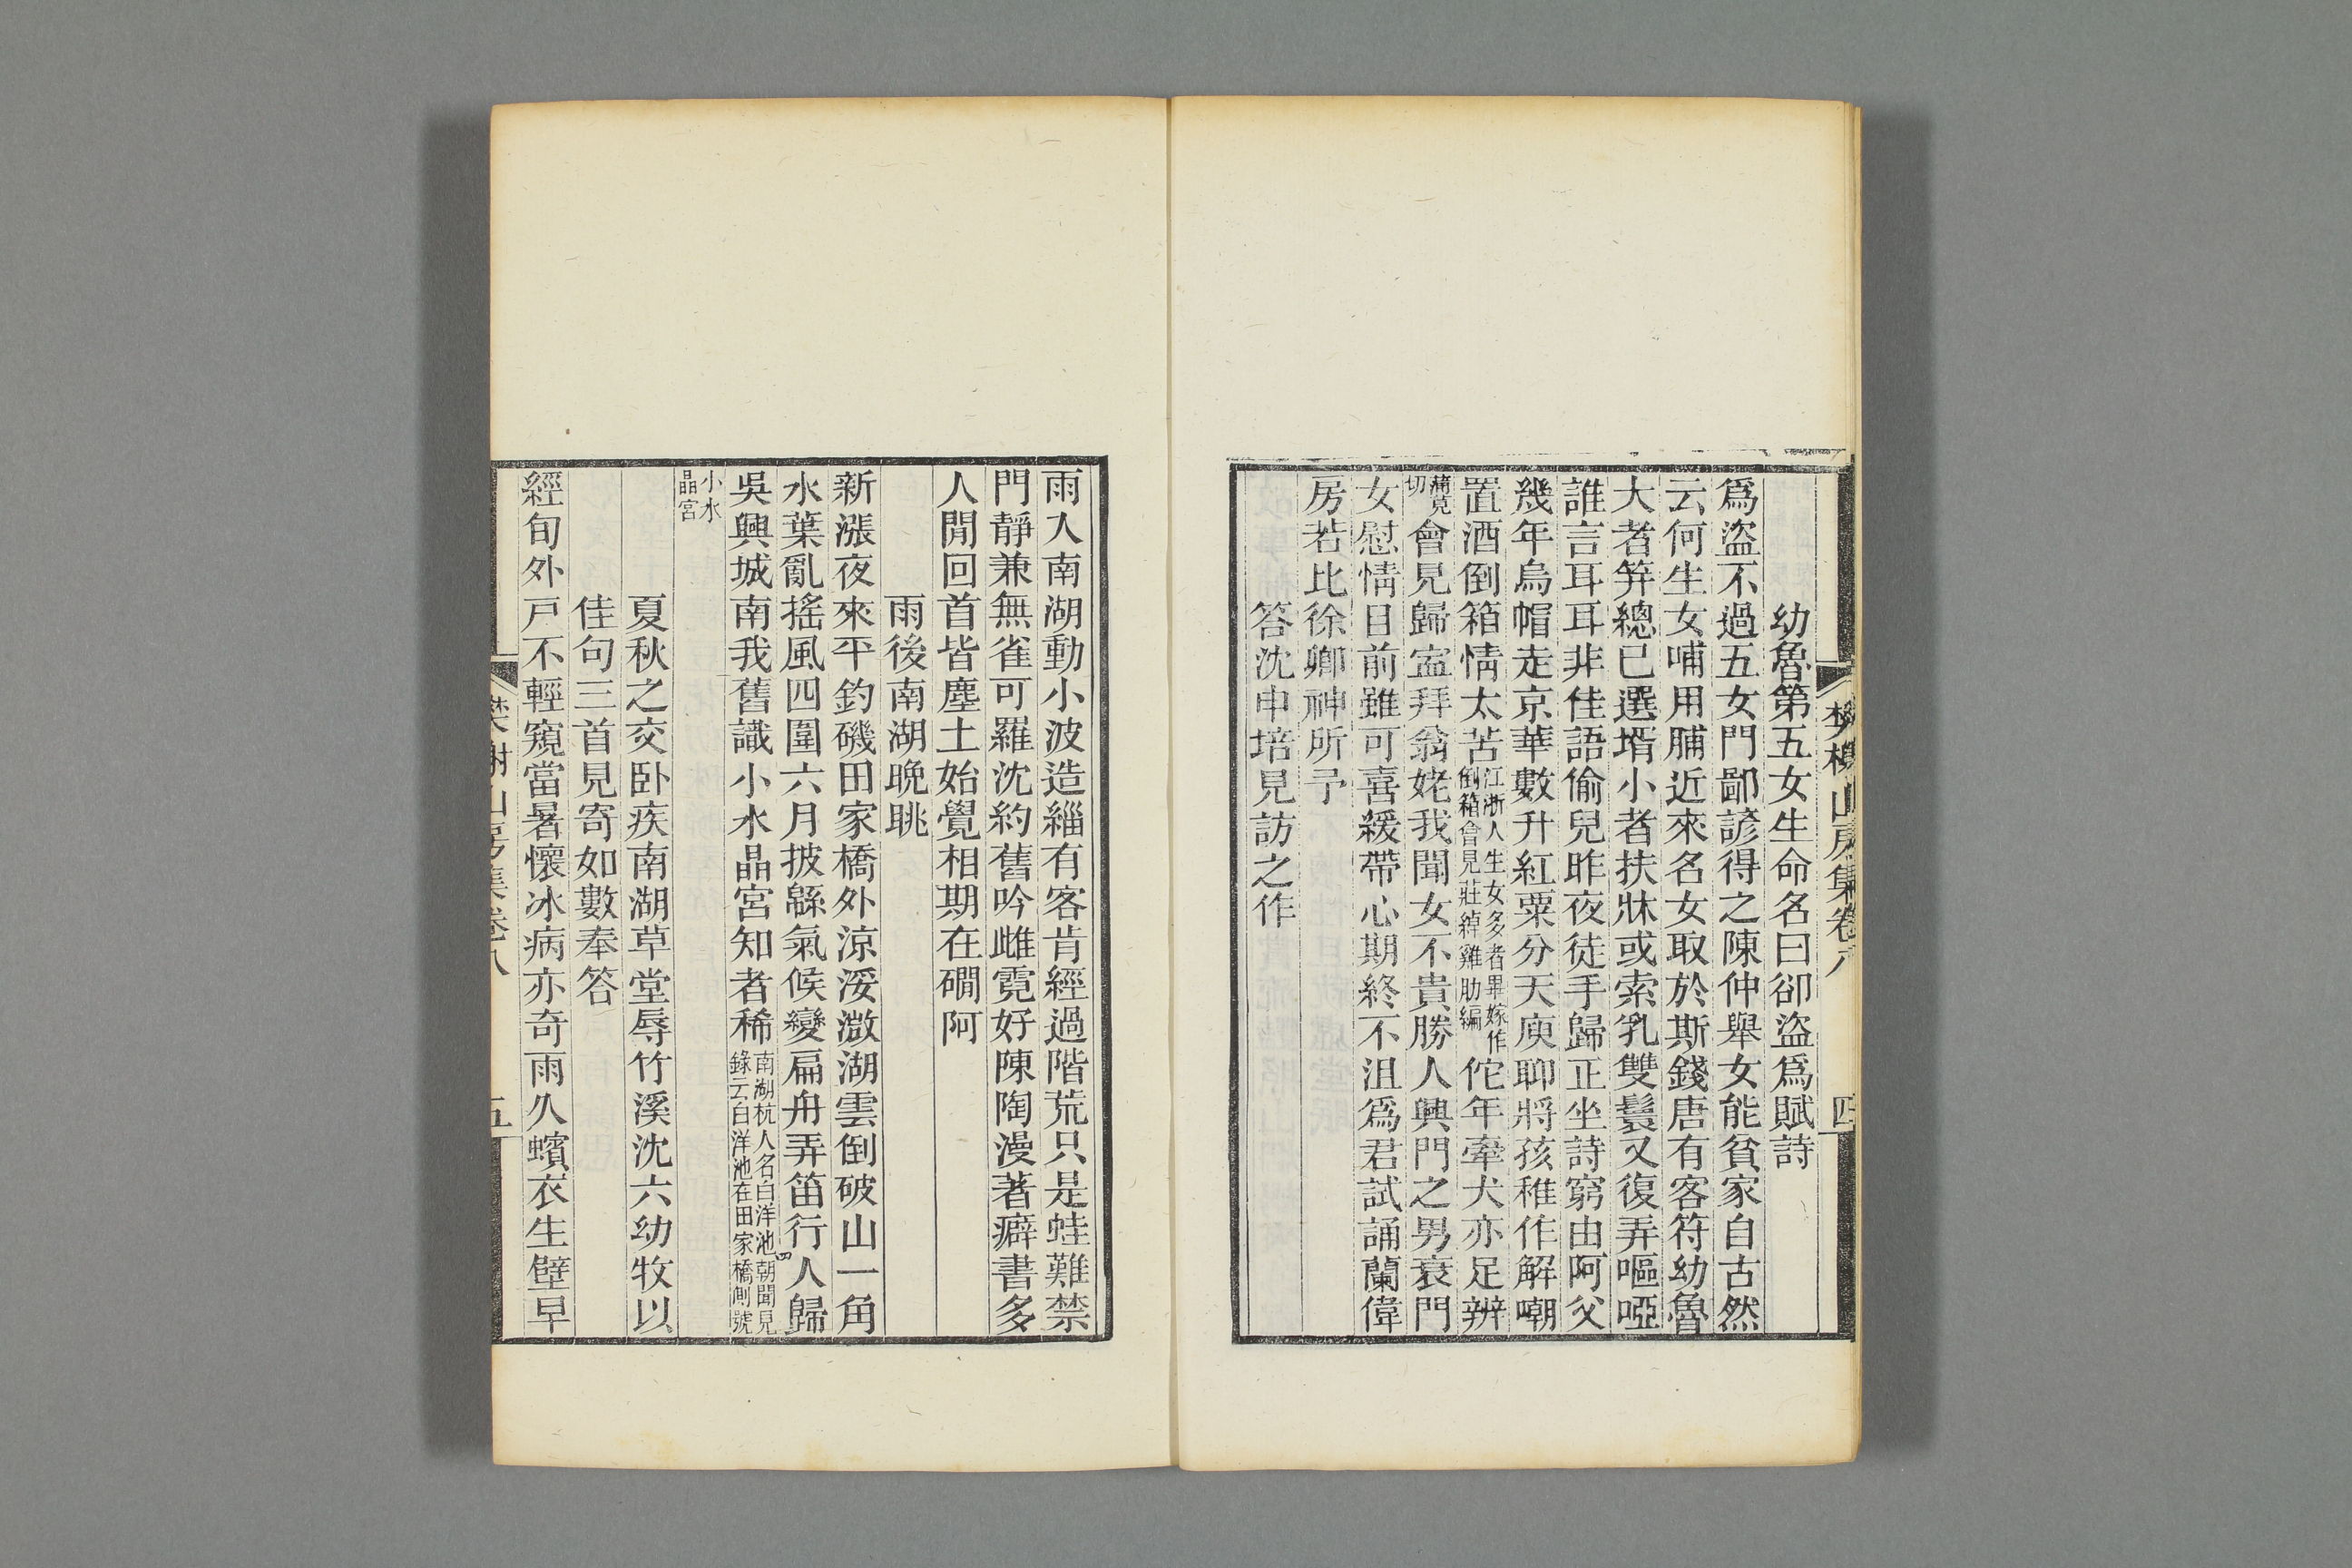 樊榭山房集卷八
四
幼魯第五女生命名曰卻盜爲賦詩
爲盜不過五女門鄙諺得之陳仲舉女能貧家自古然
云何生女哺用脯近來名女取於斯錢唐有客符幼魯
大者笄總已選壻小者扶牀或索乳雙鬟又復弄嘔啞
誰言耳耳非佳語偷兒昨夜徒手歸正坐詩窮由阿父
幾年烏帽走京華數升紅粟分天庾聊將孩稚作解嘲
置酒倒箱情太苦江浙人生女多者畢嫁作倒箱會見莊綽雞肋編佗年牽犬亦足辨
蒲莧切會見歸寍拜翁姥我聞女不貴勝人興門之男衰門
女慰情目前雖可喜緩帶心期終不沮爲君試誦蘭偉
房若比徐卿神所予
答沈申培見訪之作
雨入南湖動小波造緇有客肯經過階荒只是蛙難禁
門靜兼無雀可羅沈約舊吟雌霓好陳陶漫著癖書多
人閒回首皆塵土始覺相期在磵阿
雨後南湖晚眺
新漲夜來平釣磯田家橋外涼浽溦湖雲倒破山一角
水葉亂搖風四圍六月披緜氣候變扁舟弄笛行人歸
吳興城南我舊識小水晶宮知者稀南湖杭人名白洋池四朝聞見錄云白洋池在田家橋側號
小水晶宮
夏秋之交卧疾南湖草堂辱竹溪沈六幼牧以
佳句三首見寄如數奉答
經旬外戸不輕窺當暑懷冰病亦奇雨久蠙衣生壁早
樊榭山房集卷八
五